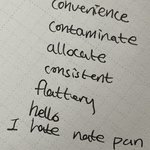 convenience
contaminate
allocate
consistent
flattery
hello
I hate note pan